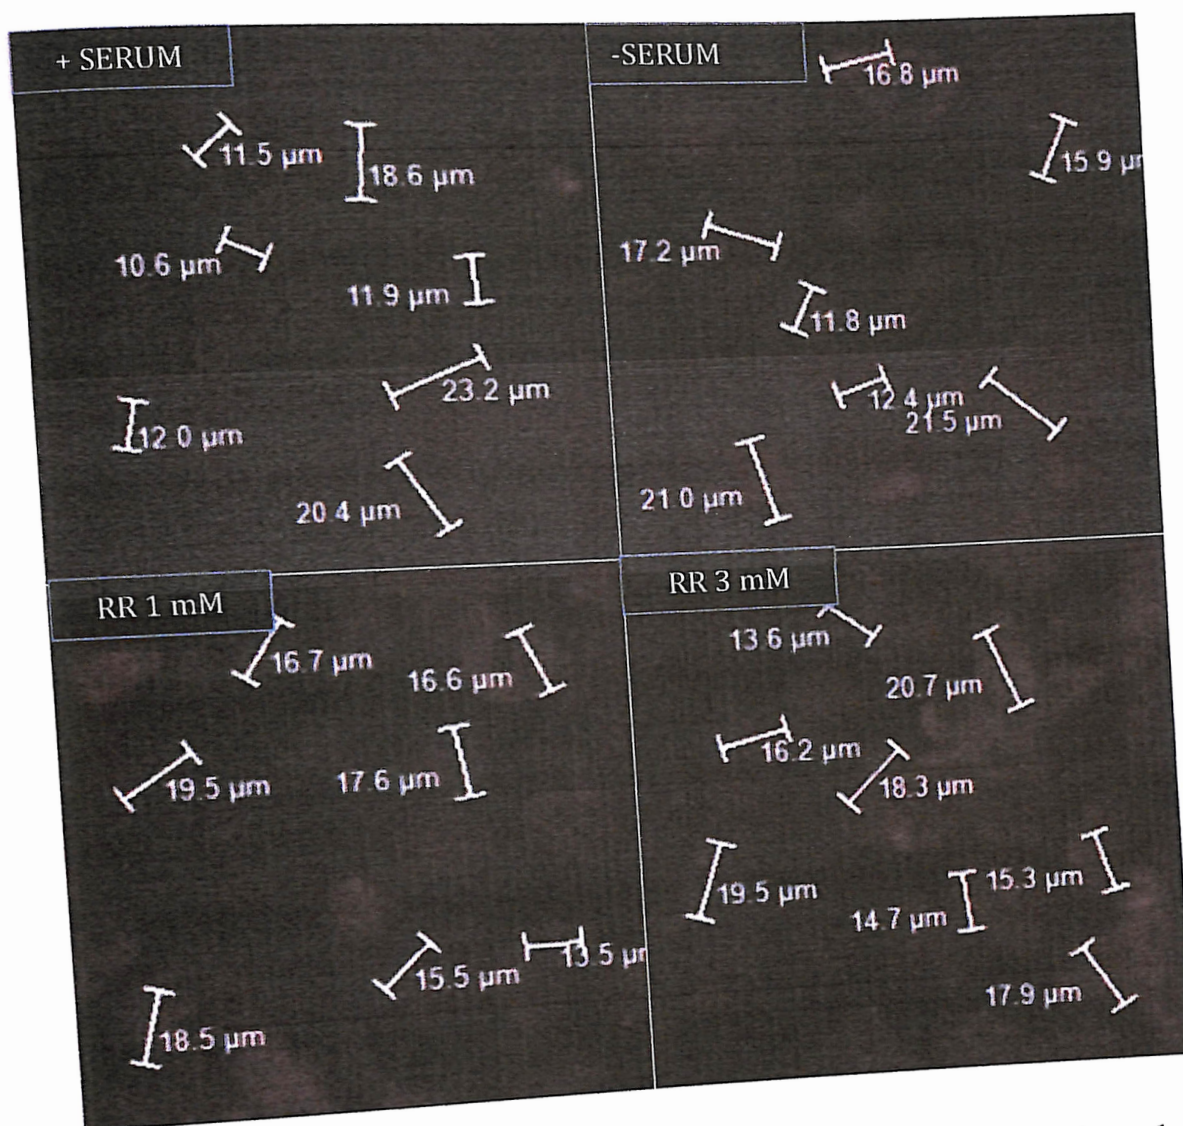 + SERUM
11.5 µm
18.6 µm
10.6 µm
11.9 µm
23.2 µm
12.0 µm
20.4 µm
-SERUM
16.8 µm
15.9 µm
17.2 µm
11.8 µm
12.4 µm
21.5 µm
21.0 µm
RR 1 mM
16.7 µm
16.6 µm
19.5 µm
17.6 µm
15.5 µm
13.5 µm
18.5 µm
RR 3 mM
13.6 µm
20.7 µm
16.2 µm
18.3 µm
19.5 µm
15.3 µm
14.7 µm
17.9 µm